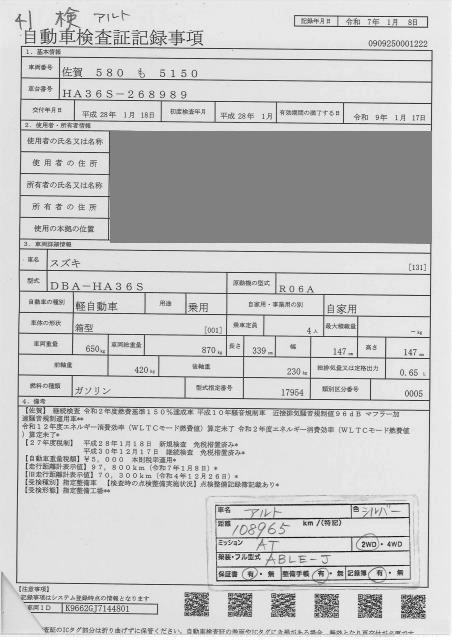 引 検 アルト
記録年月日 令和 7年 1月 8日
自動車検査証記録事項
0909250001222
1．基本情報
車両番号 佐賀 580 も 5150
車台番号 HA36S－268989
交付年月日 平成 28年 1月 18日 初度検査年月 平成 28年 1月 有効期間の満了する日 令和 9年 1月 17日
2．使用者・所有者情報
使用者の氏名又は名称
使用者の住所
所有者の氏名又は名称
所有者の住所
使用の本拠の位置
3．車両詳細情報
車名 スズキ [131]
型式 DBA－HA36S 原動機の型式 R06A
自動車の種別 軽自動車 用途 乗用 自家用・事業用の別 自家用
車体の形状 箱型 [001] 乗車定員 4人 最大積載量 －kg
車両重量 650kg 車両総重量 870kg 長さ 339cm 幅 147cm 高さ 147cm
前軸重 420kg 後軸重 230kg 総排気量又は定格出力 0.65 L
燃料の種類 ガソリン 型式指定番号 17954 類別区分番号 0005
4．備考
【佐賀】 継続検査 令和2年度燃費基準150％達成車 平成10年騒音規制車 近接排気騒音規制値96dB マフラー加
速騒音規制適用車**
令和12年度エネルギー消費効率（WLTCモード燃費値）算定未了 令和2年度エネルギー消費効率（WLTCモード燃費値
）算定未了*
【27年度税制】 平成28年1月18日 新規検査 免税措置済み*
平成30年12月17日 継続検査 免税措置済み*
【自動車重量税額】￥5，000 本則税率適用*
【走行距離計表示値】97，800km（令和7年1月8日）*
【旧走行距離計表示値】70，300km（令和4年12月26日）*
【受検種別】指定整備車 【検査時の点検整備実施状況】点検整備記録簿記載あり*
【受検形態】指定整備工場**
車名 アルト 色 シルバー
距離 108965 km／(特記)
ミッション AT 2WD・4WD
架装・フル型式 ABLE-J
保証書 有・無 整備手帳 有・無 記録簿 有・無
【注意事項】
記録事項はシステム登録時点の情報となります
車両ID K9662GJ7144801